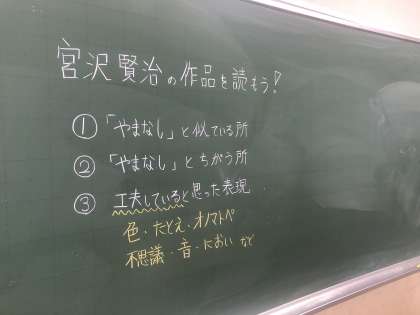 宮沢賢治の作品を読もう!
①「やまなし」と似ている所
②「やまなし」とちがう所
③ 工夫していると思った表現
色・たとえ・オノマトペ
不思議・音・におい など